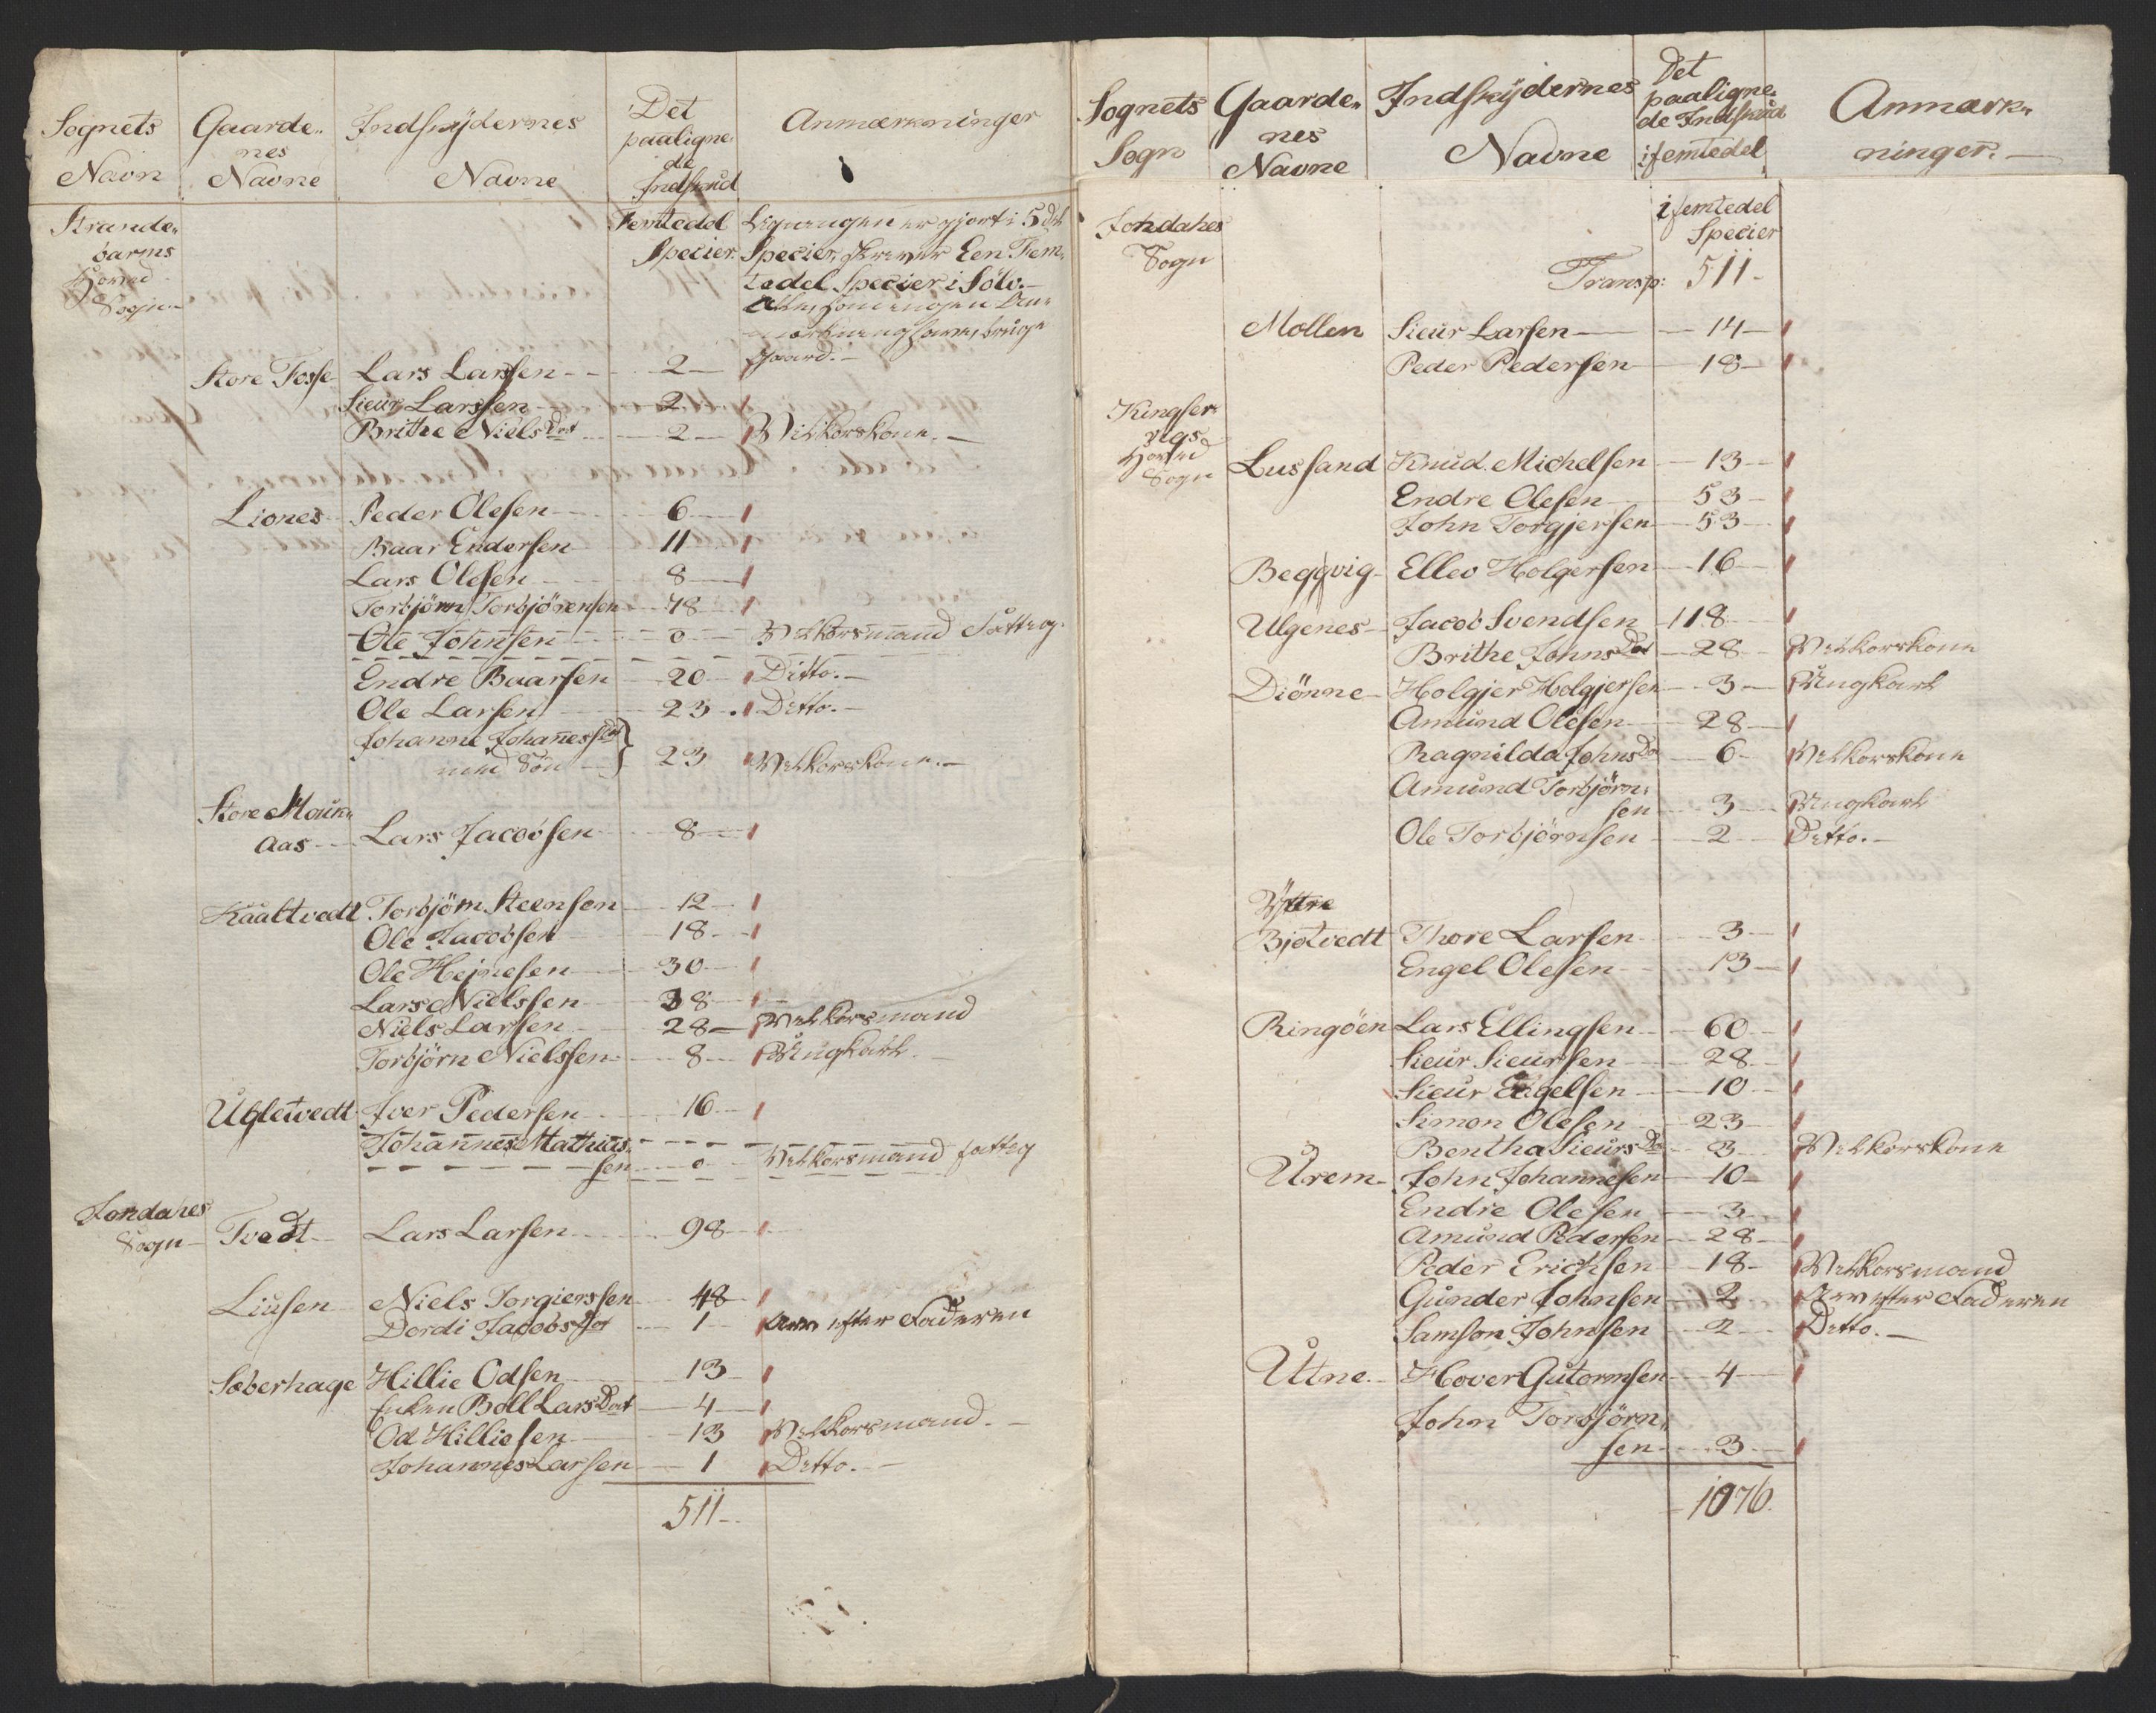 Sognets Navn | Gaarde„nes Navne | Indskydernes Navne | Det paaligne„de Indskud | Anmærkninger
Strande„barms Hoved Sogn | | | Femtedel Specier |
er gjort i 5 del
Specier, skriver Een Fem„
tedel Specier i Sölv.
gaard.
Store Tosse | Lars Larssen | 2
Sieur Larssen | 2
Brithe Niels Dot | 2 | Vilkorskone.
Liones | Peder Olesen | 6
Baar Endersen | 11
Lars Olesen | 8
Torbjörn Torbjörensen | 48
Ole Johnsen | 0 | Vilkorsmand Fattig.
Endre Baarsen | 20 | Ditto.
Ole Larsen | 23 | Ditto.
Johanne Johannes Dot
med Sön | 23 | Vilkorskone.
Store Mouk„
aas | Lars Jacobsen | 8
Kaaltvedt | Torbjörn Steensen | 12
Ole Jacobsen | 18
Ole Hejnesen | 30
Lars Nielssen | 38
Niels Larsen | 28 | Vilkorsmand
Torbjörn Nielssen | 8 | Ungkarl.
Ugletvedt | Iver Pedersen | 16
Johannes Mathias„
sen | 0 | Vilkorsmand fattig
Jondahls Sogn | Tvedt | Lars Larsen | 98
Liusen | Niels Torgierssen | 48
Dordi Jacobs Dot | 1 | Arv efter Faderen
Sæberhage | Hillie Odsen | 13
Enken Boll Lars Dot | 4
Od Hilliesen | 13 | Vilkorsmand.
Johannes Larsen | 1 | Ditto.
511
Sognets Sogn | Gaarde„nes Navne | Indskydernes Navne | Det paaligne„de Indskud i femtedel | Anmærk„ninger.
Jondahls Sogn | | | i femtedel Specier
Transp: 511
Mollen | Sieur Larsen | 14
Peder Pedersen | 18
Kingser„vigs Hoved Sogn
Lussand | Knud Michelsen | 13
Endre Olesen | 53
John Torgjersen | 53
Beggvig | Ellev Holgersen | 16
Ulgenes | Jacob Svendsen | 118
Brithe Johns Dot | 28 | Vilkorskone
Diönne | Holgjer Holgjersen | 3 | Ungkarl
Amund Olesen | 28
Ragnilda Johns Do | 6 | Vilkorskone
Amund Torbjörn„
sen | 3 | Ungkarl
Ole Torbjörnsen | 2 | Ditto.
Yttre
Bjotvedt | Thore Larsen | 3
Engel Olesen | 13
Ringöen | Lars Ellingsen | 60
Sieur Sieursen | 28
Sieur Engelsen | 10
Simon Olesen | 23
Bentha Sieurs Do | 3 | Vilkorskone
Urem | John Johannesen | 10
Endre Olesen | 3
Amund Pedersen | 28
Peder Erichsen | 18 | Vilkorsmand
Gunder Johnsen | 2 | Arv efter Faderen
Samson Johnsen | 2 | Ditto.
Utne | Hover Gutormsen | 4
John Torbjörn„
sen | 3
1076.